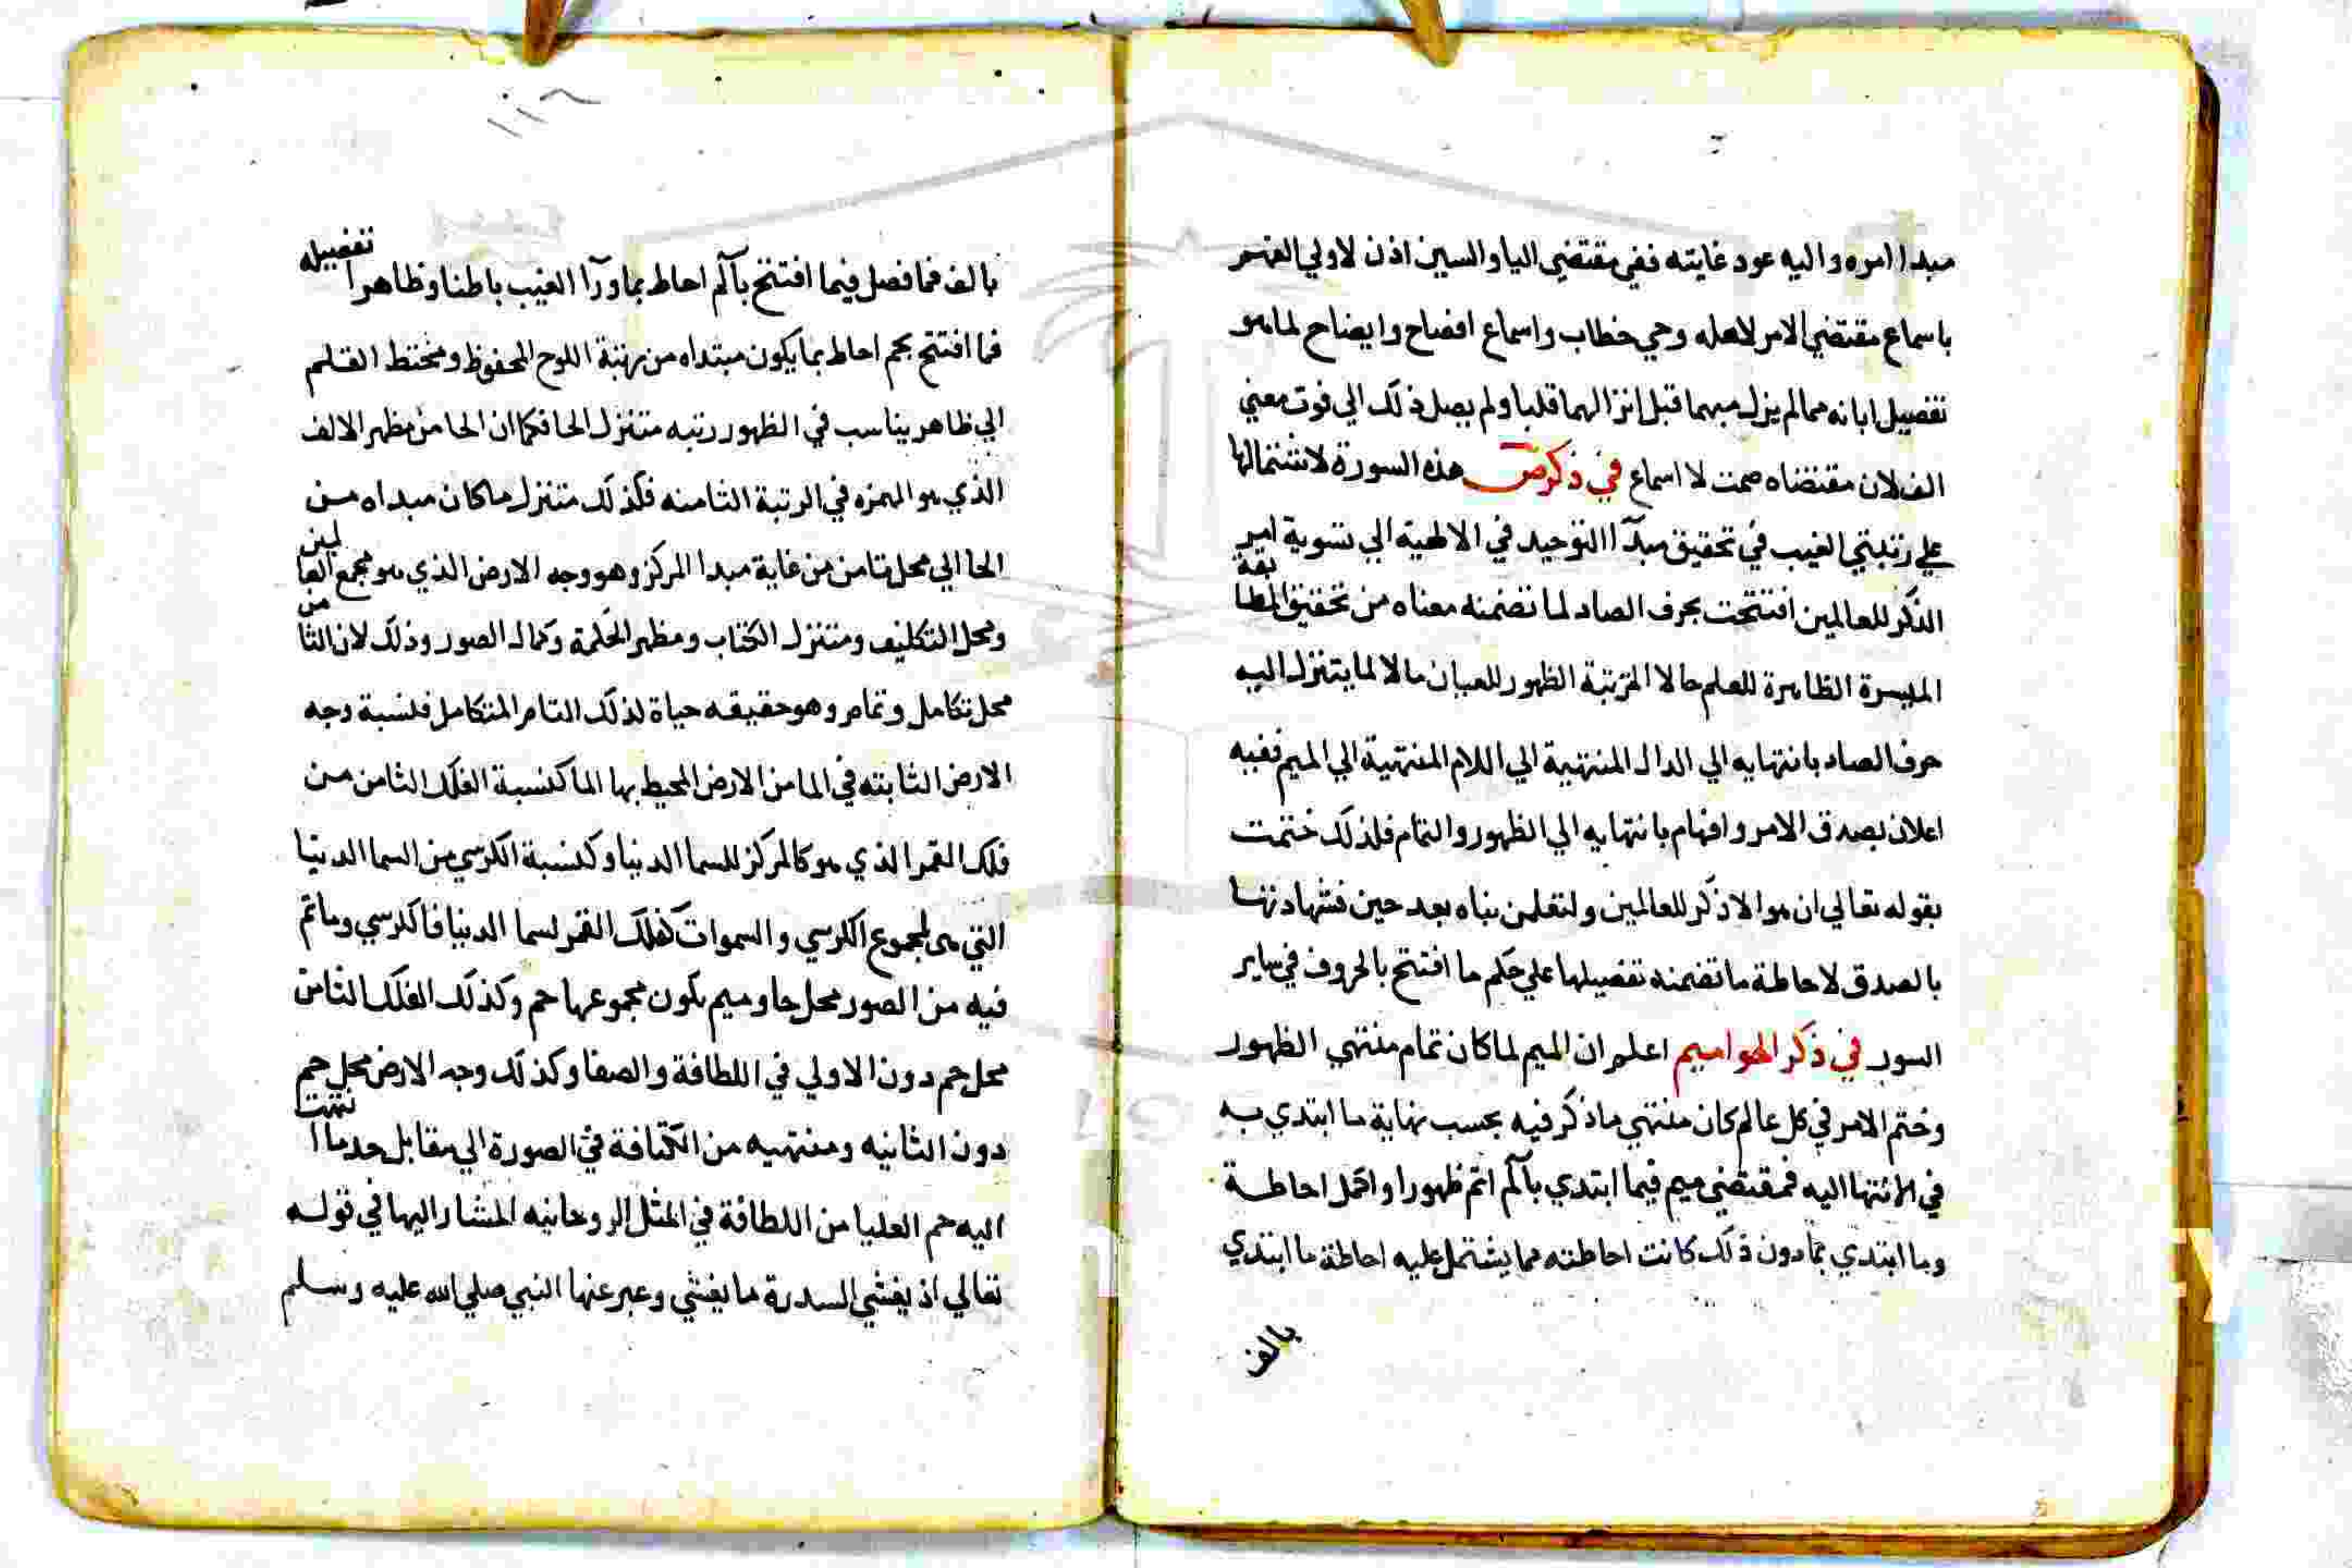 مبدا امره واليه عود غايته ففي مقتضي اليا والسين اذن لاولي الفهم
باسماع مقتضي الامر لاهله وحي خطاب واسماع افصاح وايضاح لما هو
تفصيل ابانه ممالم يزل مبهما قبل انزالهما قلبا ولم يصل ذلك الي فوت معني
الف لان مقتضاه صمت لا اسماع في ذكر ص هذه السورة لاشتمالها
علي رتبتي الغيب في تحقيق مبدآ التوحيد في الالهية الي تسوية امر
الذكر للعالمين افتتحت بحرف الصاد لما تضمنه معناه من تحقيق المطابقة
الميسرة الظاهرة للعلم حالا المرتبة الظهور للعيان مالا لما يتنزل اليه
حرف الصاد بانتهايه الي الدال المنتهية الي اللام المنتهية الي الميم ففيه
اعلان بصدق الامر وافهام بانتهايه الي الظهور والتمام فلذلك ختمت
بقوله تعالي ان هو الا ذكر للعالمين ولتعلمن نباه بعد حين فشهادتها
بالصدق لاحاطة ما تضمنه تفصيلها علي حكم ما افتتح بالحروف في ساير
السور في ذكر الحواميم اعلم ان الميم لما كان تمام منتهي الظهور
وختم الامر في كل عالم كان منتهي ما ذكر فيه بحسب نهاية ما ابتدي به
في الانتها اليه فمقتضي ميم فيما ابتدي بآلم اتم ظهورا واكمل احاطة
وما ابتدي بما دون ذلك كانت احاطته مما يشتمل عليه احاطة ما ابتدي
بالف
بالف فما فصل فيما افتتح بآلم احاط بما ورآ الغيب باطنا وظاهرا تفصيله
فما افتتح بحم احاط بما يكون مبتداه من رتبة اللوح المحفوظ ومختط القلم
الي ظاهر يناسب في الظهور رتبه متنزل الحا فكما ان الحا من مظهر الالف
الذي هو الهمزه في الرتبة الثامنه فكذلك متنزل ما كان مبداه من
الحا الي محل ثامن من غاية مبدا المركز وهو وجه الارض الذي هو مجمع العالمين
ومحل التكليف ومتنزل الكتاب ومظهر الحكمة وكمال الصور وذلك لان الثامن
محل تكامل وتمام وهو حقيقه حياة لذلك التام المتكامل فنسبة وجه
الارض الثابته في الما من الارض المحيط بها الما كنسبة الفلك الثامن من
فلك القمر الذي هو كالمركز للسما الدنيا وكنسبة الكرسي من السما الدنيا
التي هي لمجموع الكرسي والسموات كفلك القمر لسما الدنيا فالكرسي وما تم
فيه من الصور محل حا وميم يكون مجموعها حم وكذلك الفلك الثامن
محل حم دون الاولي في اللطافة والصفا وكذلك وجه الارض محل حم
دون الثانيه ومنتهيه من الكثافة في الصورة الي مقابل حد ما انتهت
اليه حم العليا من اللطافة في المثل الروحانيه المشار اليها في قوله
تعالي اذ يغشي السدرة ما يغشي وعبر عنها النبي صلي الله عليه وسلم